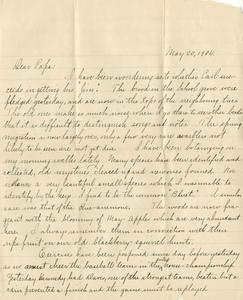 May 20, 1904.
Dear Papa:
I have been wondering as to whether Earl suc-
ceeds in getting his "gun." The brood in the School grove were
fledged yesterday, and are now in the tops of the neighboring trees.
The old ones make so much noise when I go than to see other birds
that it is difficult to distinguish songs and notes. The spring
migration is now largely over, only a few very rare warblers not
likely to be seen are not yet due. I have been botanizing on
my morning walks lately. Many species have been identified and
collected, old mysteries cleared up and new ones formed. For
instance a very beautiful small species which I was unable to
identify by the key, I found to be the common "Cleaver." A similar
case was that of the The woods are now fra-
grant with the blooming of May-Apples which are very abundant
here. I always remember them in connection with their
ripe fruit on our old blackberry squirrel hunts.
Exercises have been postponed since day before yesterday
as we must cheer the baseball team in the championship.
Yesterday Kennedy had Slaves, one of the strongest teams, beaten but a
rain prevented a finish and the game must be replayed